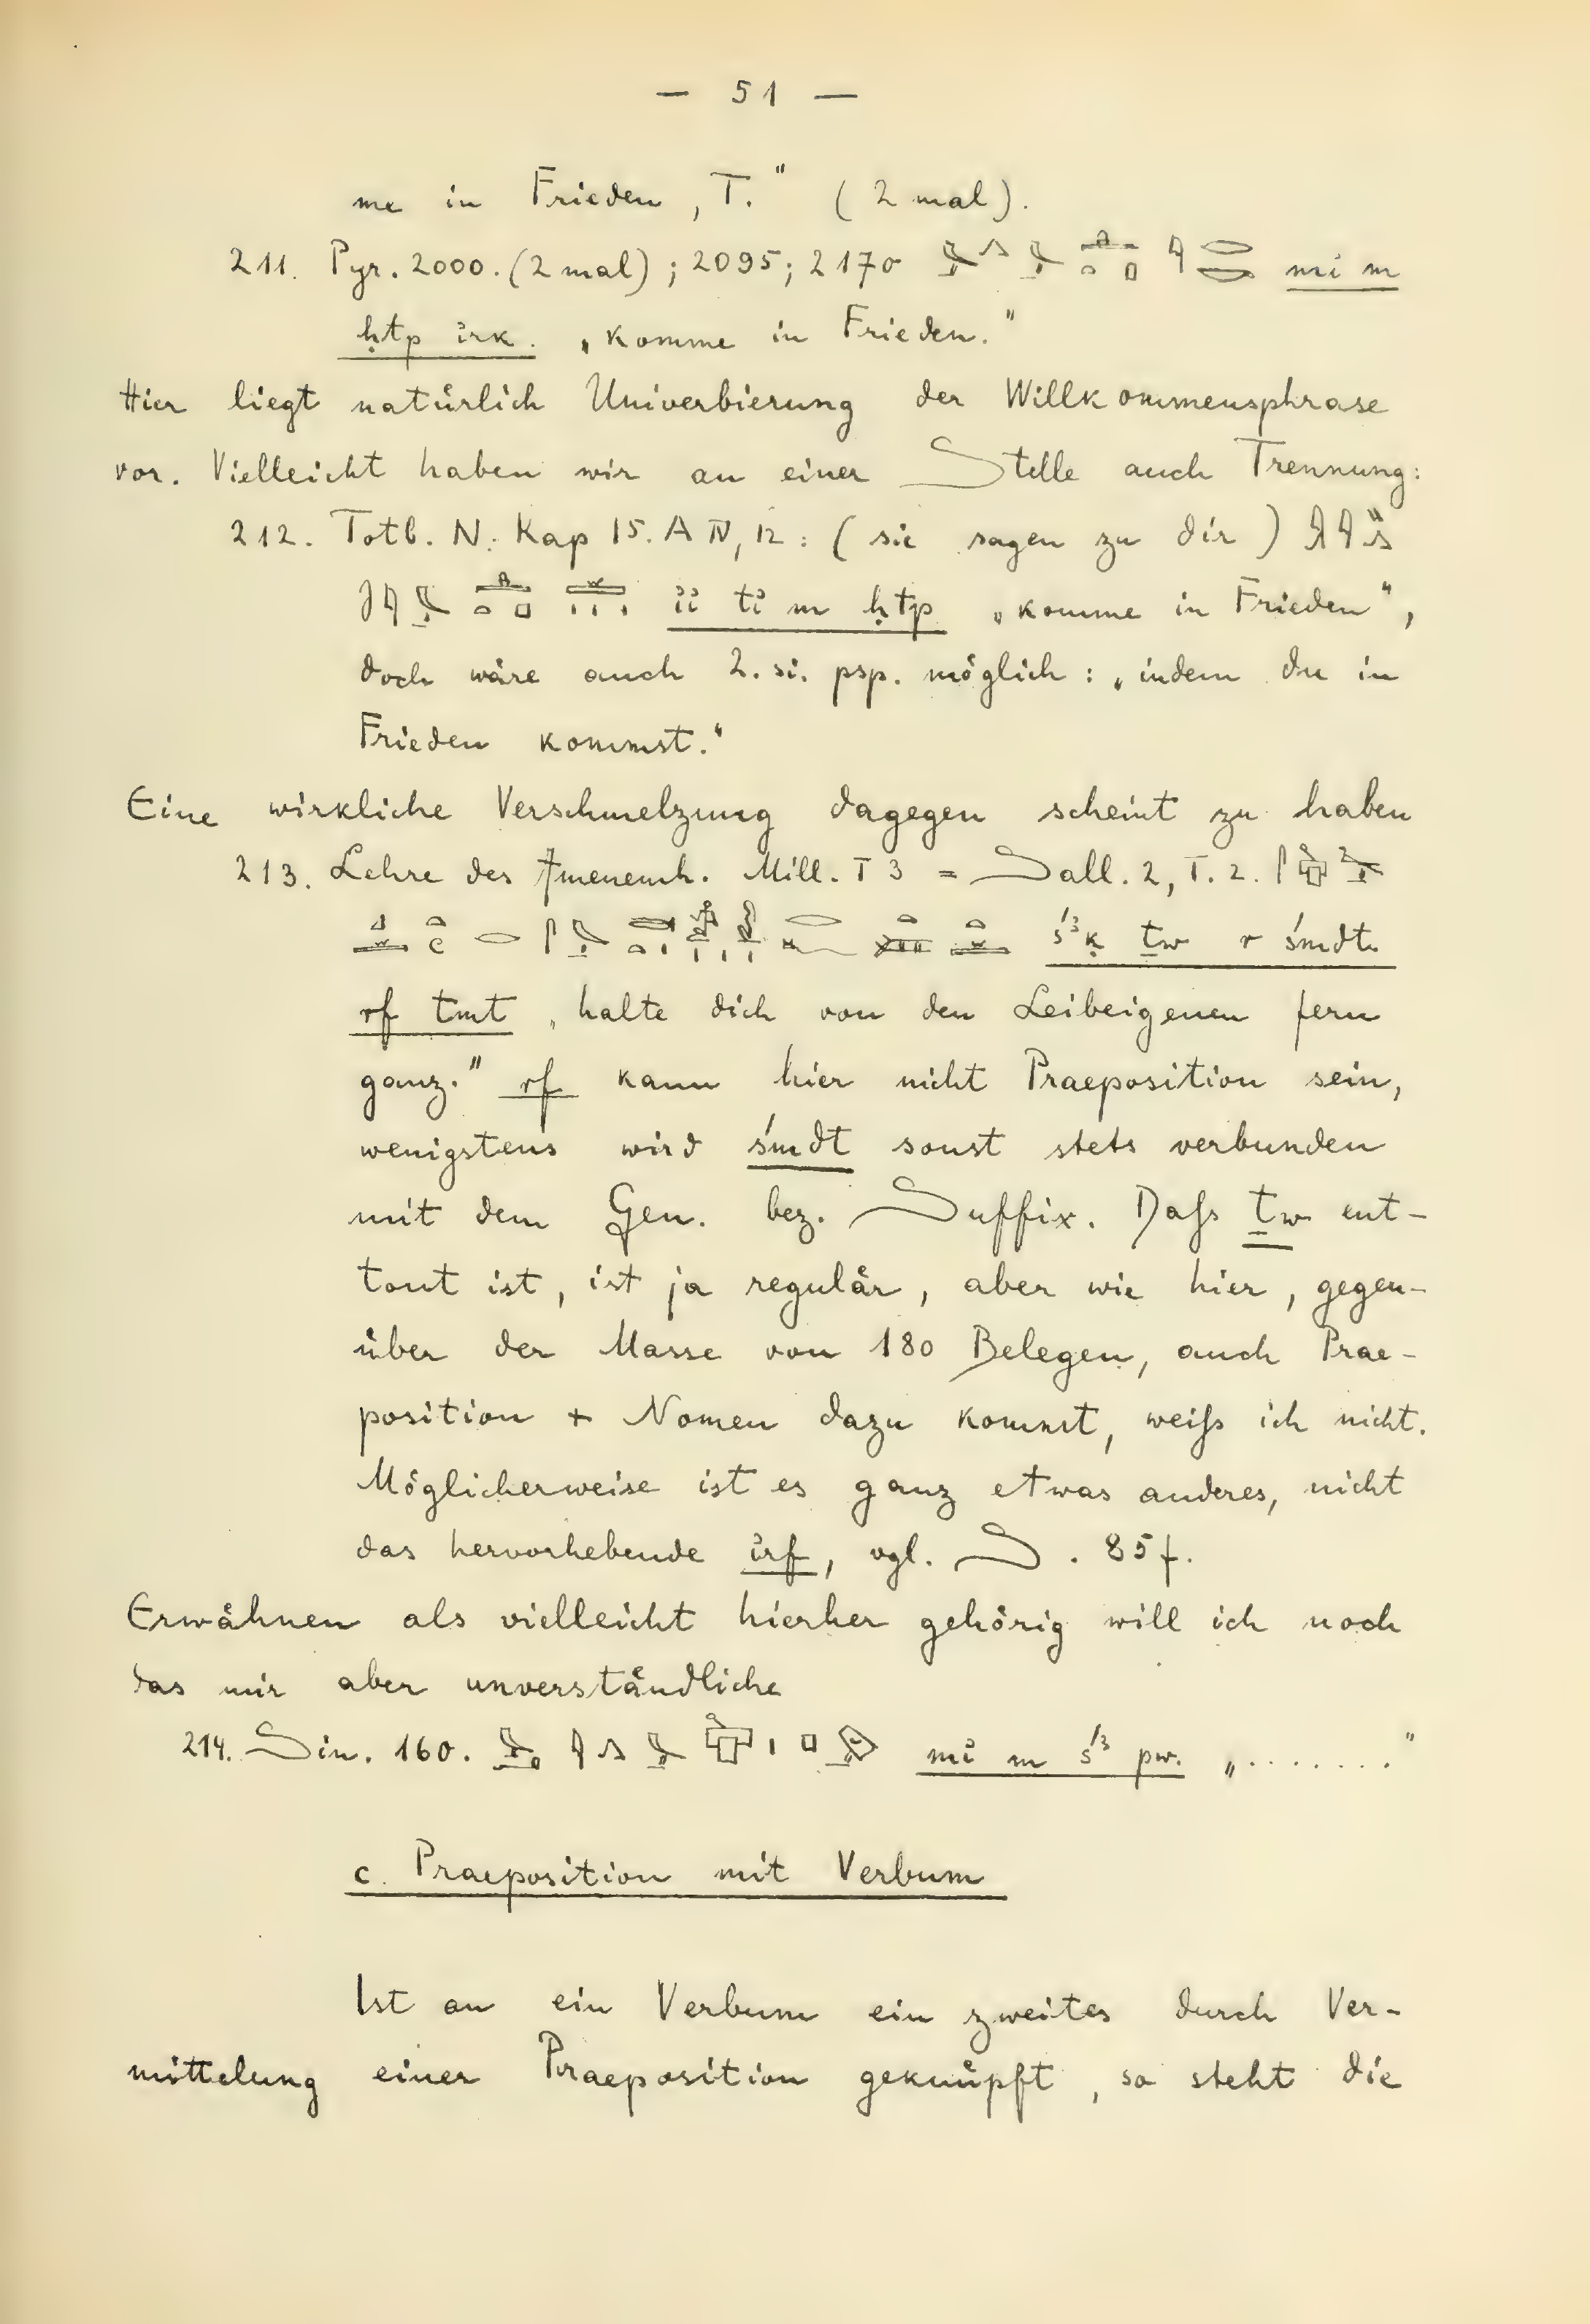 — 51 —
me in Frieden, T." (2 mal).
211. Pyr. 2000. (2 mal); 2095; 2170 mi m
ḥtp irk. „komme in Frieden."
Hier liegt natürlich Univerbierung der Willkommensphrase
vor. Vielleicht haben wir an einer Stelle auch Trennung:
212. Totb. N. Kap 15. A IV, 12: (sie sagen zu dir)
ii ti m ḥtp „komme in Frieden",
doch wäre auch 2. si. psp. möglich: „indem du in
Frieden kommst."
Eine wirkliche Verschmelzung dagegen scheint zu haben
213. Lehre des Amenemh. Mill. I 3 = Sall. 2, I. 2.
ś3ḳ ṯw r śmdt
rf tmt „halte dich von den Leibeigenen fern
ganz." rf kann hier nicht Praeposition sein,
wenigstens wird śmdt sonst stets verbunden
mit dem Gen. bez. Suffix. Daſs ṯw ent-
tont ist, ist ja regulär, aber wie hier, gegen-
über der Masse von 180 Belegen, auch Prae-
position + Nomen dazu kommt, weiſs ich nicht.
Möglicherweise ist es ganz etwas anderes, nicht
das hervorhebende irf, vgl. S. 85f.
Erwähnen als vielleicht hierher gehörig will ich noch
das mir aber unverständliche
214. Sin. 160. mi m s3 pw. „......."
c. Praeposition mit Verbum
Ist an ein Verbum ein zweites durch Ver-
mittelung einer Praeposition geknüpft, so steht die